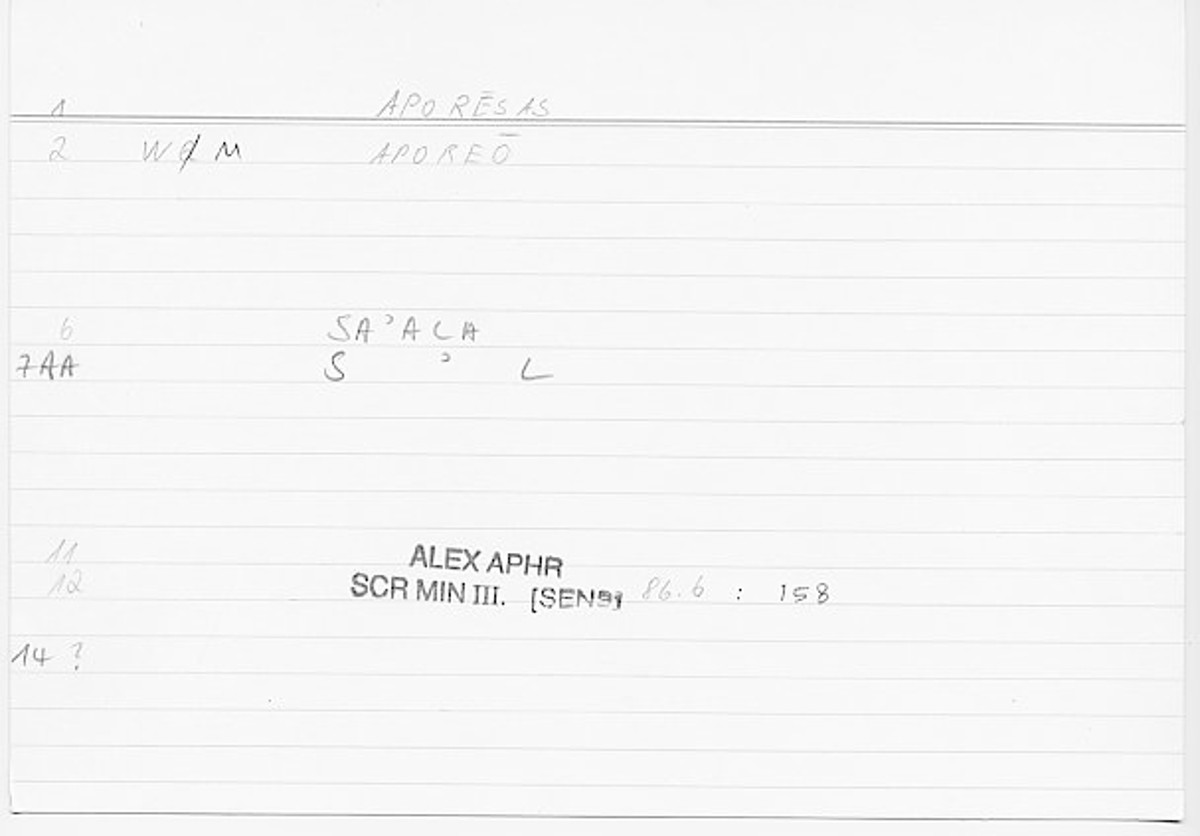 1 APORĒSAS
2 W M APOREŌ
6 SA'ALA
7AA S ' L
11 ALEX APHR
12 SCR MIN III. [SENS] 86.6 : 158
14 ?